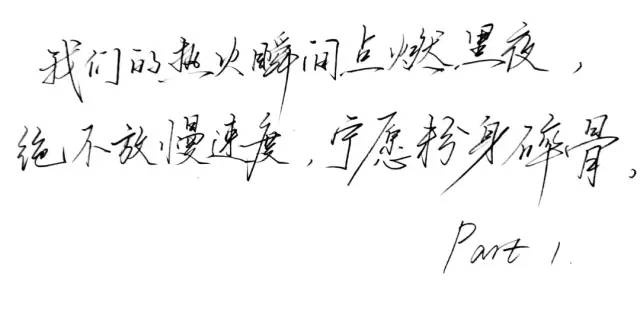 我们的热火瞬间点燃黑夜，
绝不放慢速度，宁愿粉身碎骨，
Part 1.